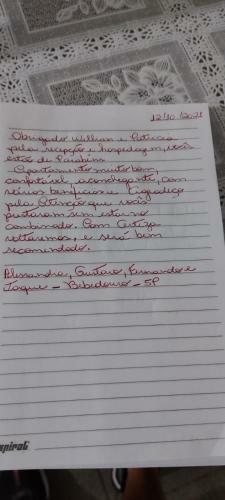 12/10/2021
Obrigado Willian e Patricia
pela recepção e hospedagem, vocês
estão de Parabéns.
Apartamento muito bom,
confortável, aconchegante, com
vários benefícios. Agradeço
pela Atenção que vocês
prestaram sem estar no
combinado. Com Certeza
voltaremos, e será bem
recomendado.
Alessandra, Gustavo, Fernando e
Jaque - Bebedouro - SP
spiral